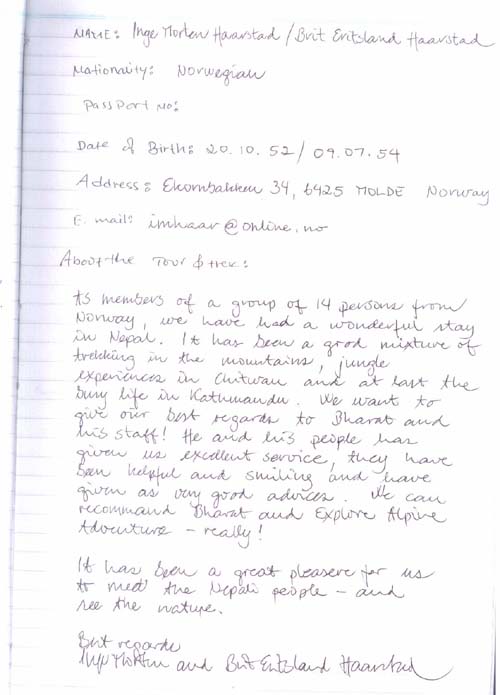 NAME: Inge Morten Haarstad / Brit Eritsland Haarstad
Nationality: Norwegian
Passport No:
Date of Birth: 20.10.52 / 09.07.54
Address: Ekornbakken 34, 6425 MOLDE Norway
E. mail: imhaar@online.no
About the Tour & trek:
As members of a group of 14 persons from
Norway, we have had a wonderful stay
in Nepal. It has been a good mixture of
trekking in the mountains, jungle
experiences in Chitwan and at last the
busy life in Kathmandu. We want to
give our best regards to Bharat and
his staff! He and his people has
given us excellent service, they have
been helpful and smiling and have
given us very good advices. We can
recommand Bharat and Explore Alpine
Adventure - really!
It has been a great pleasere for us
to meet the Nepali people - and
see the nature.
Best regards
Inge Morten and Brit Eritsland Haarstad